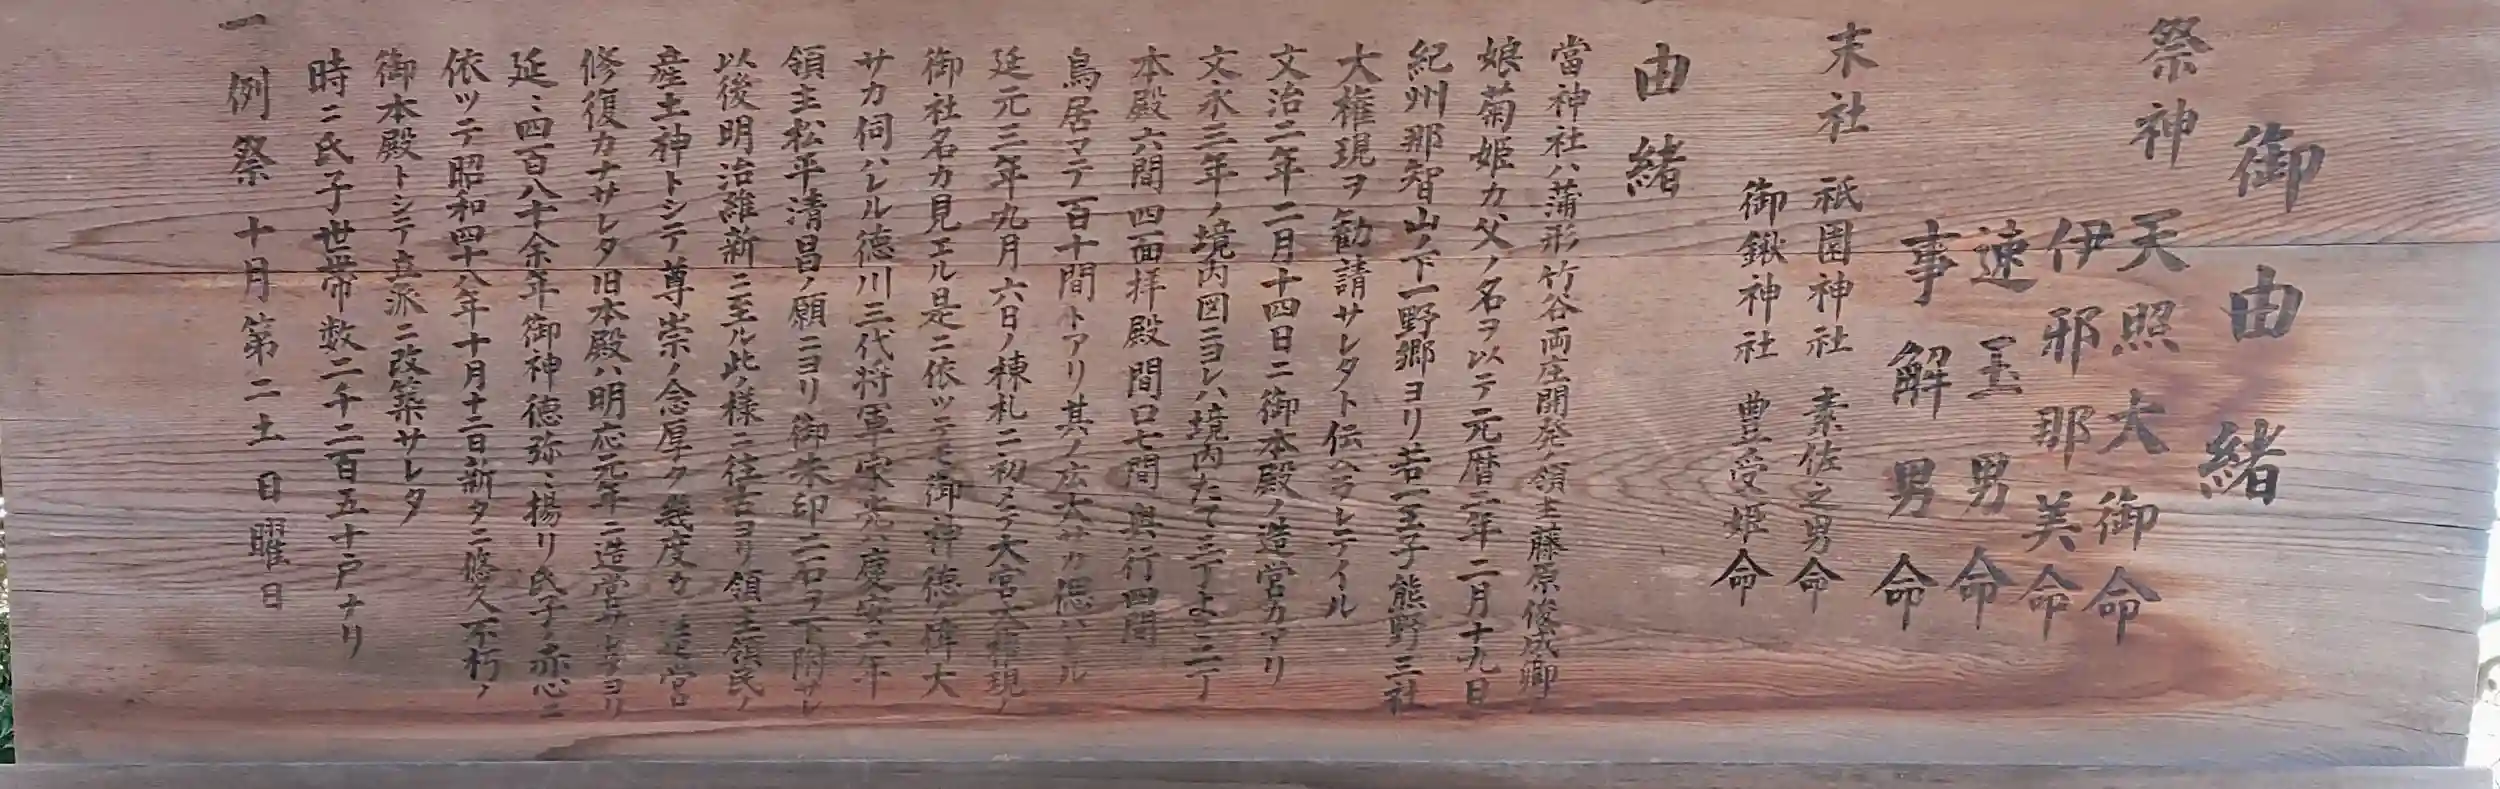 御由緒
祭神 天照大御命
伊邪那美命
速玉男命
事解男命
末社 祇園神社 素佐之男命
御鍬神社 豊受姫命
由緒
當神社ハ蒲形竹谷両庄開発ノ領主藤原俊成卿
娘菊姫カ父ノ名ヲ以テ元暦二年二月十九日
紀州那智山ノ下一野郷ヨリ若一王子熊野三社
大権現ヲ勧請サレタト伝ヘラレテイル
文治二年二月十四日ニ御本殿ノ造営カアリ
文永三年ノ境内図ニヨレハ境内たて三丁よこ二丁
本殿六間四面拝殿間口七間奥行四間
鳥居マテ百十間トアリ其ノ広大サカ偲ハレル
延元三年九月六日ノ棟札ニ初メテ大宮大権現ノ
御社名カ見エル是ニ依ツテモ御神徳ノ偉大
サカ伺ハレル徳川三代将軍家光ハ慶安二年
領主松平清昌ノ願ニヨリ御朱印二石ヲ下附サレ
以後明治維新ニ至ル此ノ様ニ往古ヨリ領主領民ノ
産土神トシテ尊崇ノ念厚ク幾度カ 造営
修復カナサレタ旧本殿ハ明応元年ニ造営
延ニ四百八十余年御神徳弥ミ揚リ氏子ノ赤心ニ
依ツテ昭和四十八年十月十二日新タニ悠久不朽ノ
御本殿トシテ立派ニ改築サレタ
時ニ氏子世帯数二千二百五十戸ナリ
一例祭 十月第二土日曜日